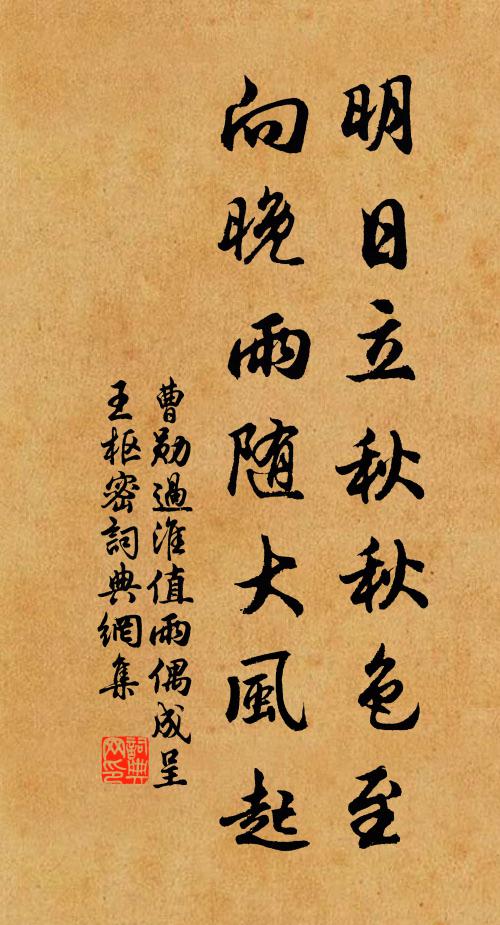 明日立秋秋色至
向晚雨随大風起
曹勛過淮值雨偶成呈
王枢密詞典網集
詞典网印